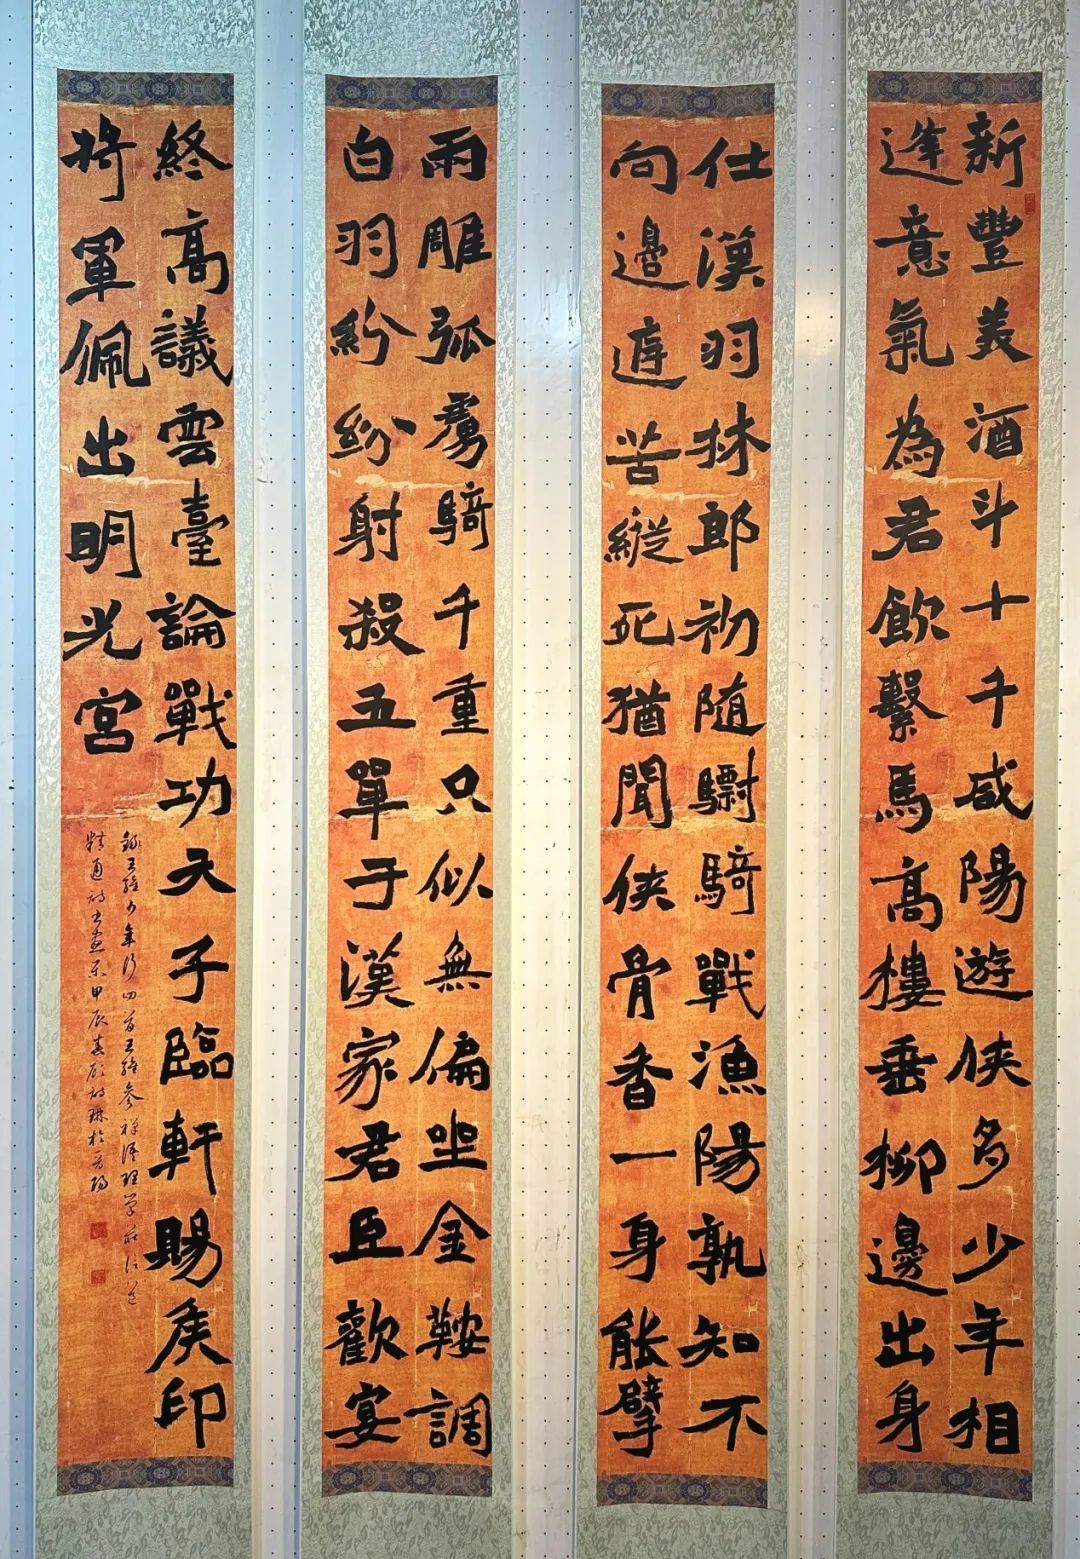 新豐美酒斗十千咸陽遊俠多少年相
逢意氣為君飲繫馬高樓垂柳邊出身
仕漢羽林郎初随驃騎戰漁陽孰知不
向邊庭苦縱死猶聞俠骨香一身能擘
兩雕弧虜騎千重只似無偏坐金鞍調
白羽紛紛射殺五單于漢家君臣歡宴
終高議雲臺論戰功天子臨軒賜侯印
將軍佩出明光宮
錄王維少年行四首王維參禪悟理學莊信道
精通詩書畫樂甲辰春